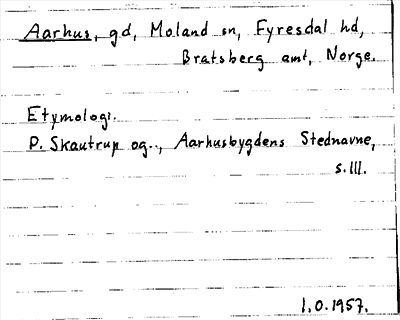 Aarhus, gd, Moland sn, Fyresdal hd,
Bratsberg amt, Norge.
Etymologi.
P. Skautrup og.., Aarhusbygdens Stednavne,
s.III.
1.0.1957.